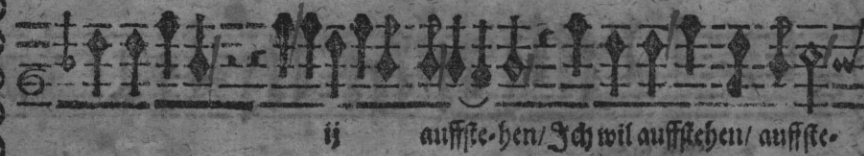 ij auffste-hen/ Ich wil auffstehen/ auffste-